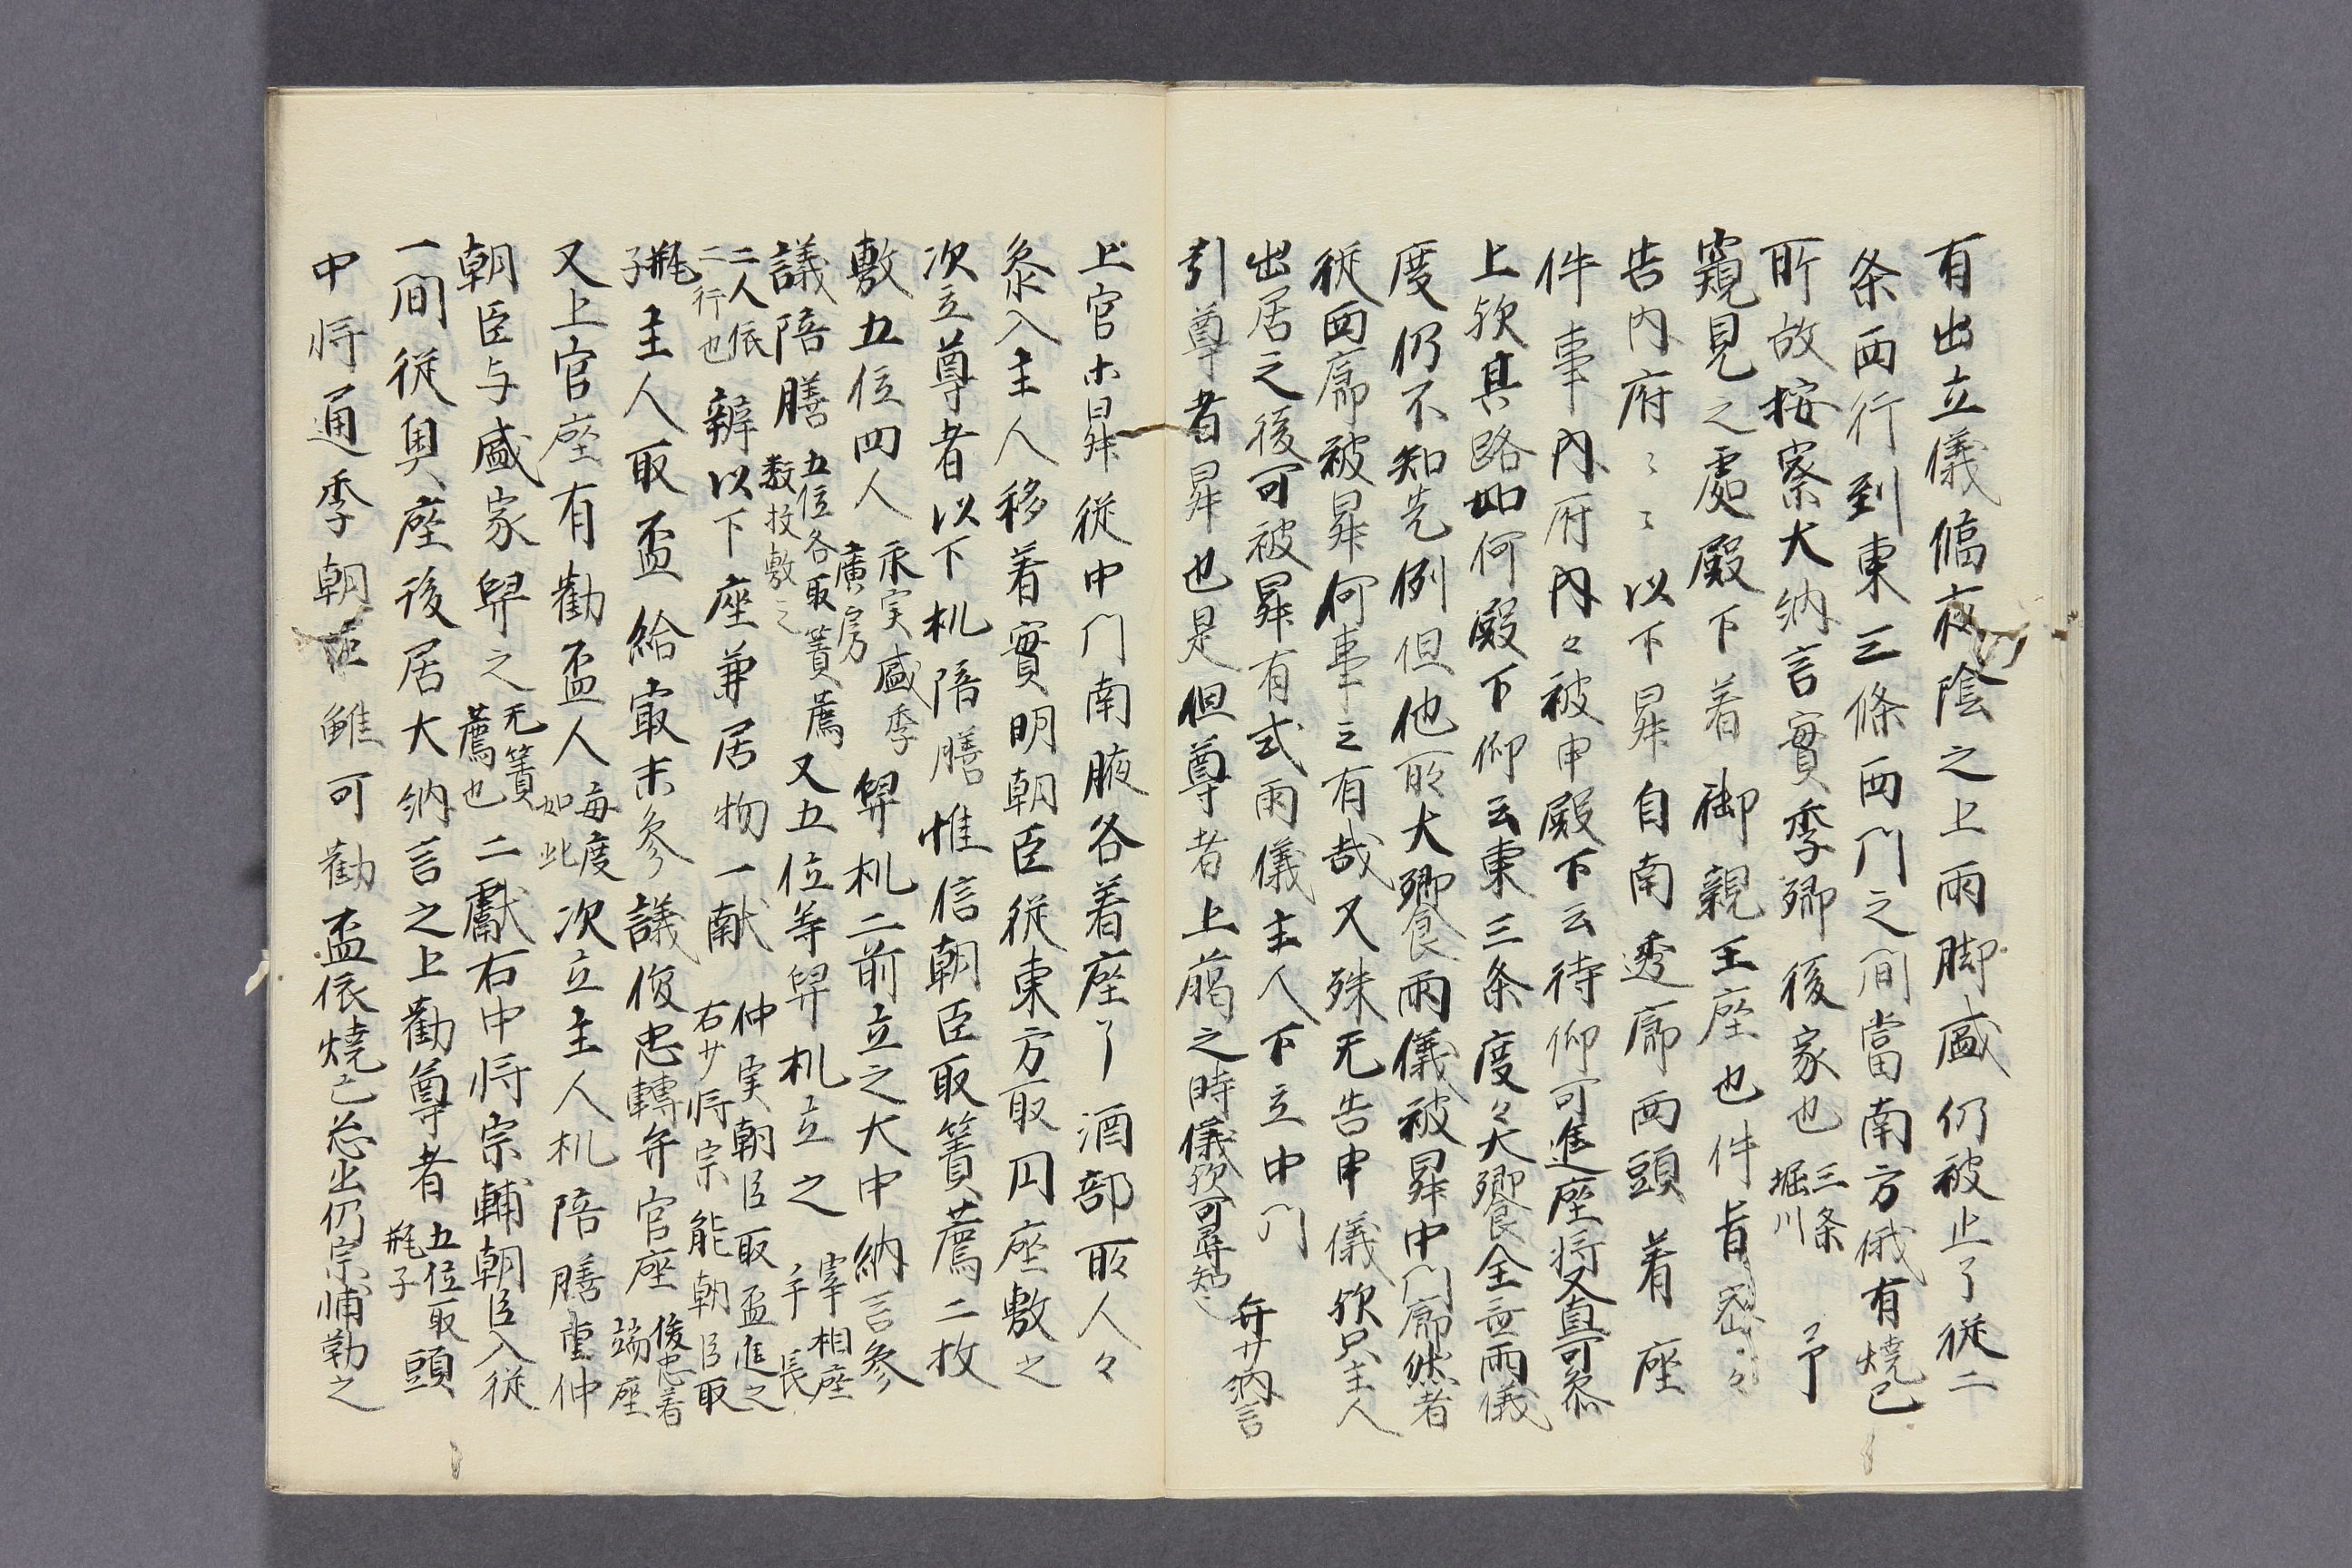 有出立儀偏夜陰之上雨脚盛仍被止了従二
条西行到東三條西門之間當南方俄有燒亡
所故按察大納言實季卿後家也三条堀川予
窺見之處殿下着御親王座也件旨密々
告内府〻〻以下昇自南透廊西頭着座
件事内府内々被申殿下云待仰可進座将又直可参
上欤其路如何殿下仰云東三条度々大饗全無雨儀
度仍不知先例但他所大饗雨儀被昇中門廊然者
従西廊被昇何事之有哉又殊无告申儀欤只主人
出居之後可被昇有式雨儀主人下立中門
引尊者昇也是但尊者上臈之時儀欤可尋知之弁少納言
上官ホ昇従中門南腋各着座了酒部所人々
参入主人移着實明朝臣従東方取円座敷之
次立尊者以下机陪膳惟信朝臣取簀薦二枚
敷五位四人永実盛季廣房舁机二前立之大中納言参
議陪膳五位各取簀薦数枚敷之又五位等舁机立之宰相座手長
二人依二行也辨以下座兼居物一献仲実朝臣取盃進之右少将宗能朝臣取
瓶子主人取盃給㝡末参議俊忠轉弁官座俊忠着端座
又上官座有勸盃人毎度如此次立主人机陪膳重仲
朝臣与盛家舁之无簀薦也二獻右中将宗輔朝臣入従
一間従奥座後居大納言之上勸尊者五位取瓶子頭
中将通季朝臣雖可勸盃依燒亡怱出仍宗輔勤之